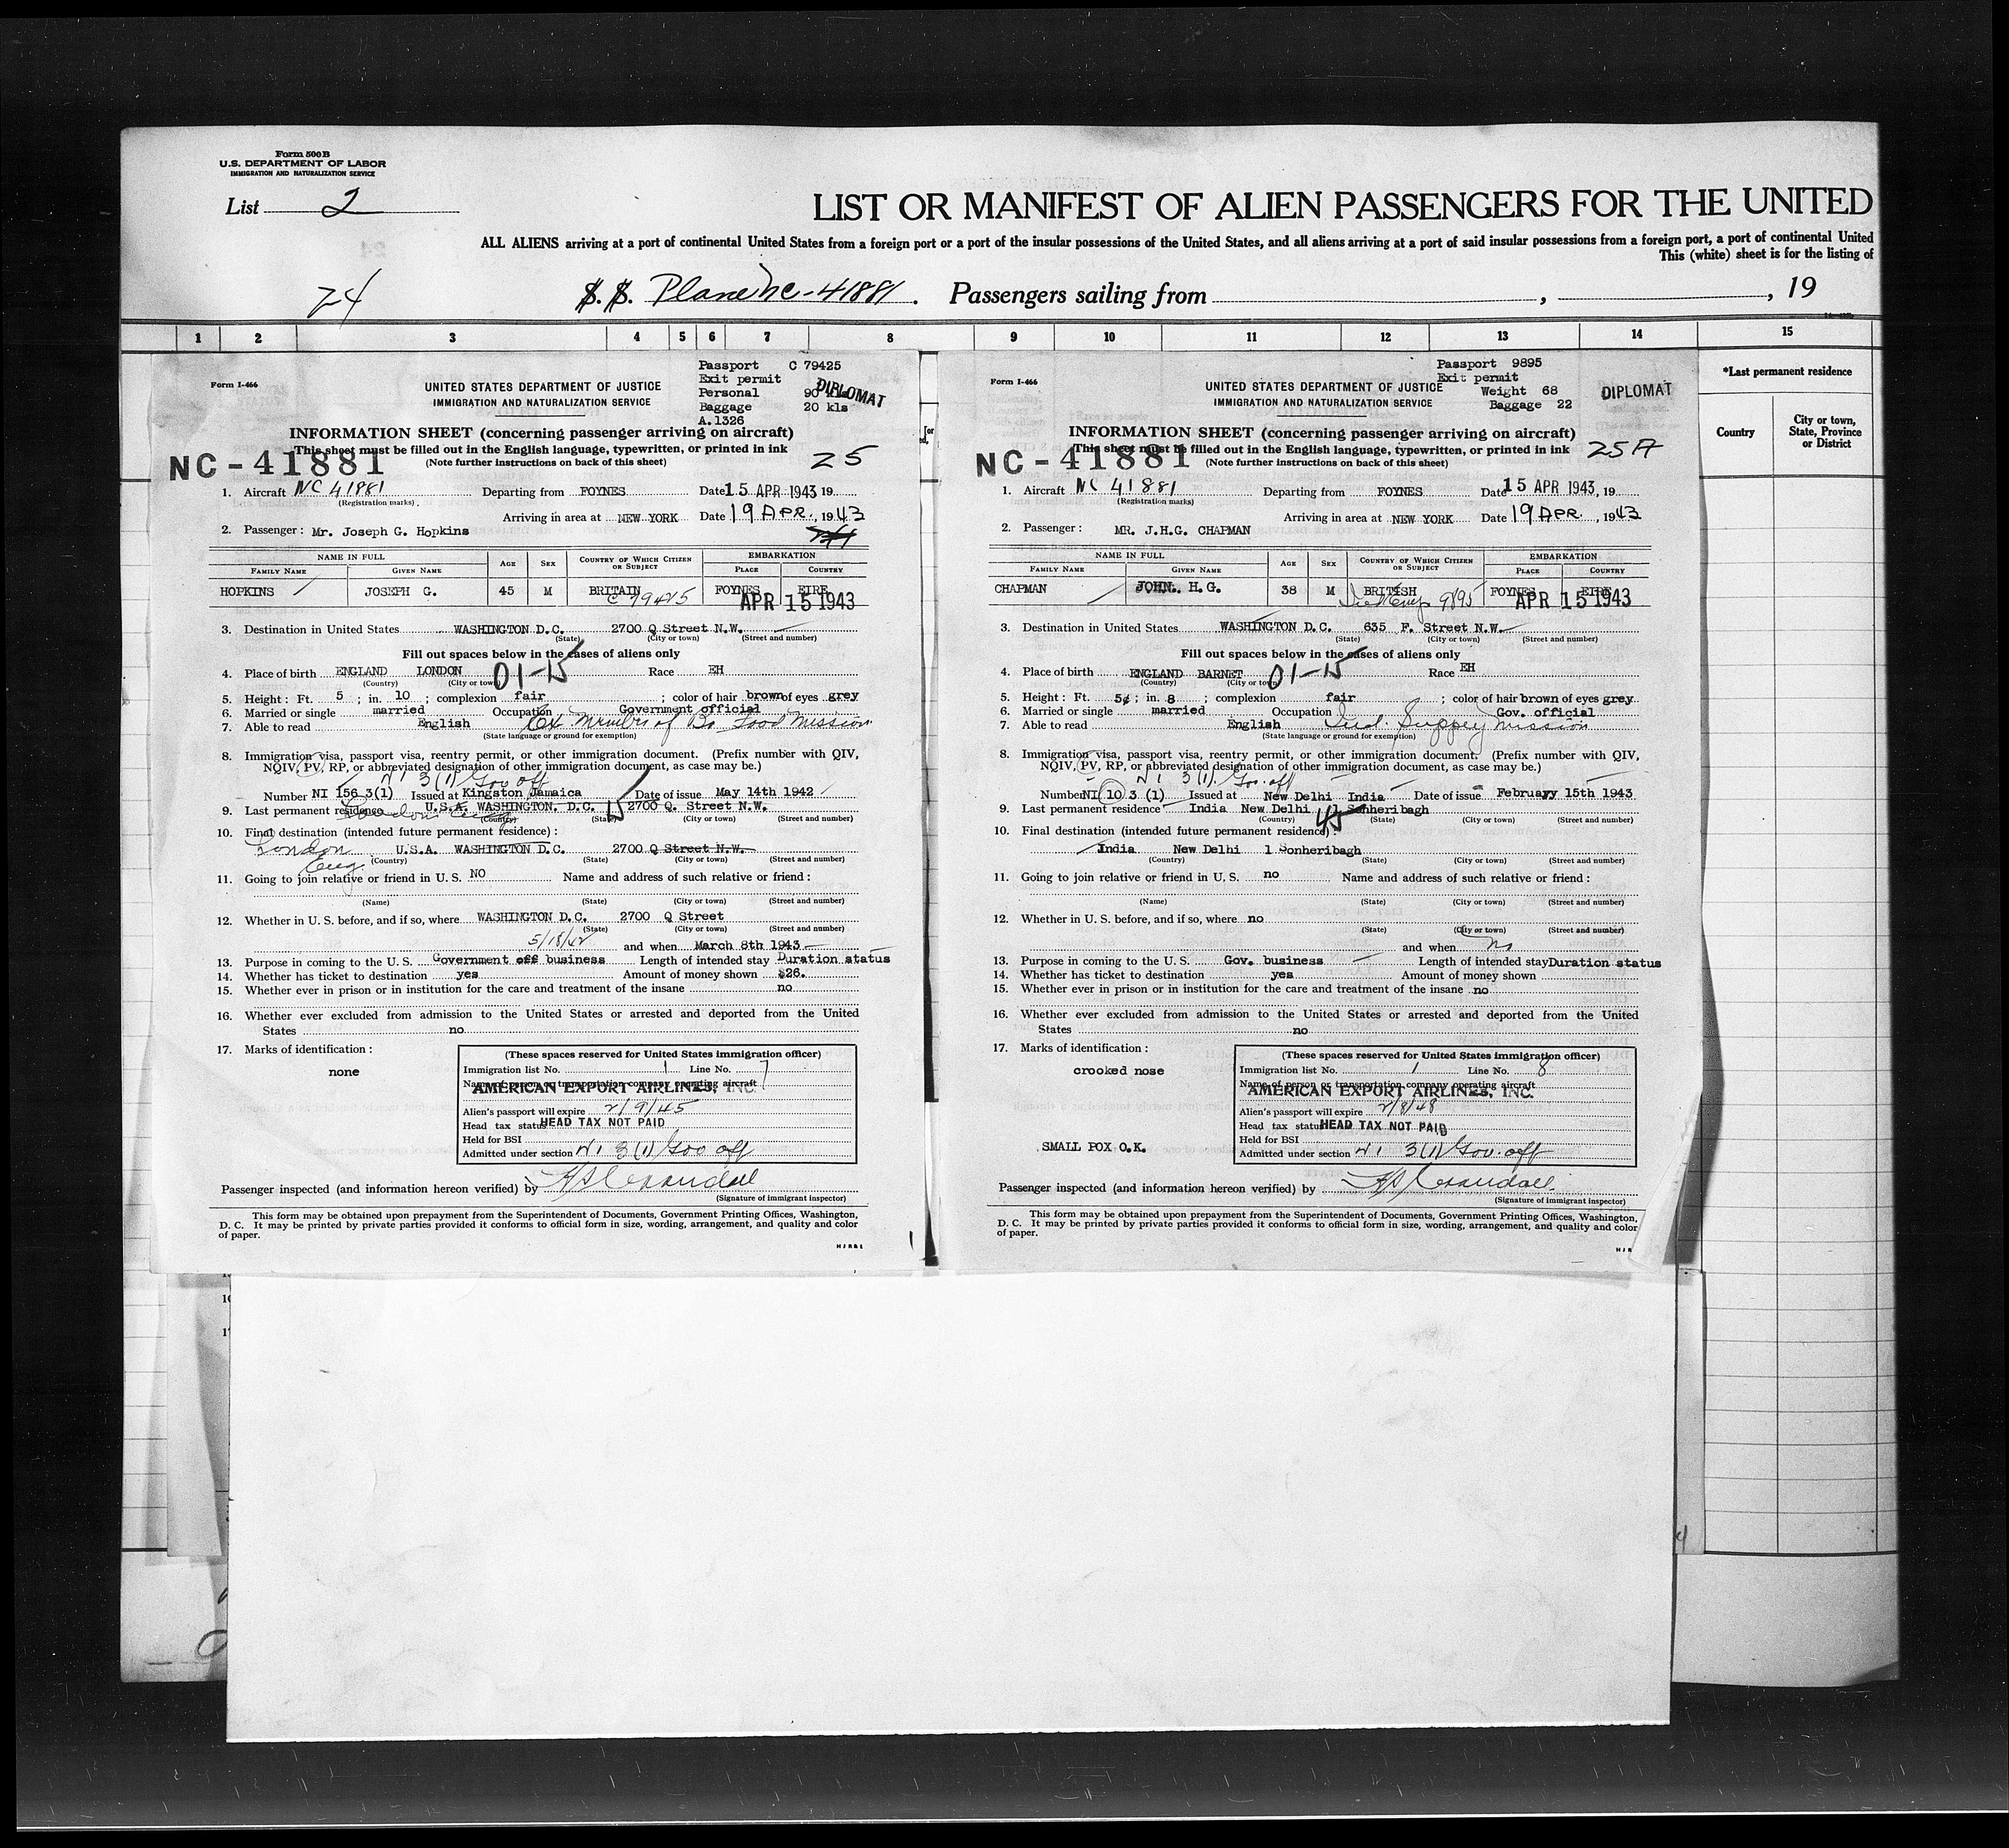 Form 500B
U.S. DEPARTMENT OF LABOR
IMMIGRATION AND NATURALIZATION SERVICE
List 2
LIST OR MANIFEST OF ALIEN PASSENGERS FOR THE UNITED
ALL ALIENS arriving at a port of continental United States from a foreign port or a port of the insular possessions of the United States, and all aliens arriving at a port of said insular possessions from a foreign port, a port of continental United
This (white) sheet is for the listing of
24
S. S. Plane NC-41881. Passengers sailing from , , 19
1 2 3 4 5 6 7 8 9 10 11 12 13 14 15
*Last permanent residence
Country
City or town, State, Province or District
Form I-466
Passport C 79425
Exit permit
Personal 90 kls
Baggage 20 kls
A.1326
DIPLOMAT
UNITED STATES DEPARTMENT OF JUSTICE
IMMIGRATION AND NATURALIZATION SERVICE
INFORMATION SHEET (concerning passenger arriving on aircraft)
This sheet must be filled out in the English language, typewritten, or printed in ink
(Note further instructions on back of this sheet)
NC-41881
25
1. Aircraft NC 41881 Departing from FOYNES Date 15 APR 1943 19
(Registration marks)
Arriving in area at NEW YORK Date 19 APR. , 1943
2. Passenger : Mr. Joseph G. Hopkins
NAME IN FULL AGE SEX COUNTRY OF WHICH CITIZEN OR SUBJECT EMBARKATION
FAMILY NAME GIVEN NAME PLACE COUNTRY
HOPKINS JOSEPH G. 45 M BRITAIN FOYNES EIRE
C 79425 APR 15 1943
3. Destination in United States WASHINGTON D.C. 2700 Q Street N.W.
(State) (City or town) (Street and number)
Fill out spaces below in the cases of aliens only
4. Place of birth ENGLAND LONDON 01-15 Race EH
(Country) (City or town)
5. Height : Ft. 5 ; in. 10 ; complexion fair ; color of hair brown of eyes grey
6. Married or single married Occupation Government official
7. Able to read English Ex Member of Br. Food Mission
(State language or ground for exemption)
8. Immigration visa, passport visa, reentry permit, or other immigration document. (Prefix number with QIV,
NQIV, PV, RP, or abbreviated designation of other immigration document, as case may be.)
NI 3(1) Gov off
Number NI 156 3(1) Issued at Kingston Jamaica Date of issue May 14th 1942
9. Last permanent residence U.S.A. WASHINGTON. D.C. 15 2700 Q. Street N.W.
London Eng
(Country) (State) (City or town) (Street and number)
10. Final destination (intended future permanent residence) :
London Eng. U.S.A. WASHINGTON D.C. 2700 Q Street N.W.
(Country) (State) (City or town) (Street and number)
11. Going to join relative or friend in U. S. NO Name and address of such relative or friend :
(Name) (State) (City or town) (Street and number)
12. Whether in U. S. before, and if so, where WASHINGTON D.C. 2700 Q Street
(State) (City or town) (Street and number)
5/18/42 and when March 8th 1943
13. Purpose in coming to the U. S. Government off business Length of intended stay Duration status
14. Whether has ticket to destination yes Amount of money shown $26.
15. Whether ever in prison or in institution for the care and treatment of the insane no
16. Whether ever excluded from admission to the United States or arrested and deported from the United
States no
17. Marks of identification :
none
(These spaces reserved for United States immigration officer)
Immigration list No. 1 Line No. 7
Name of person or transportation company operating aircraft
AMERICAN EXPORT AIRLINES, INC.
Alien's passport will expire 2/9/45
Head tax status HEAD TAX NOT PAID
Held for BSI
Admitted under section NI 3(1) Gov off
Passenger inspected (and information hereon verified) by
(Signature of immigrant inspector)
This form may be obtained upon prepayment from the Superintendent of Documents, Government Printing Offices, Washington,
D. C. It may be printed by private parties provided it conforms to official form in size, wording, arrangement, and quality and color
of paper.
Form I-466
Passport 9895
Exit permit
Weight 68
Baggage 22
DIPLOMAT
UNITED STATES DEPARTMENT OF JUSTICE
IMMIGRATION AND NATURALIZATION SERVICE
INFORMATION SHEET (concerning passenger arriving on aircraft)
This sheet must be filled out in the English language, typewritten, or printed in ink
(Note further instructions on back of this sheet)
NC-41881
25A
1. Aircraft NC 41881 Departing from FOYNES Date 15 APR 1943, 19
(Registration marks)
Arriving in area at NEW YORK Date 19 APR. , 1943
2. Passenger : MR. J.H.G. CHAPMAN
NAME IN FULL AGE SEX COUNTRY OF WHICH CITIZEN OR SUBJECT EMBARKATION
FAMILY NAME GIVEN NAME PLACE COUNTRY
CHAPMAN JOHN. H.G. 38 M BRITISH FOYNES EIRE
9895 APR 15 1943
3. Destination in United States WASHINGTON D.C. 635 F. Street N.W.
(State) (City or town) (Street and number)
Fill out spaces below in the cases of aliens only
4. Place of birth ENGLAND BARNET 01-15 Race EH
(Country) (City or town)
5. Height : Ft. 5 ; in. 8 ; complexion fair ; color of hair brown of eyes grey
6. Married or single married Occupation Gov. official
7. Able to read English Ind. Supply Mission
(State language or ground for exemption)
8. Immigration visa, passport visa, reentry permit, or other immigration document. (Prefix number with QIV,
NQIV, PV, RP, or abbreviated designation of other immigration document, as case may be.)
NI 3(1). Gov. off
Number NI (10) 3 (1) Issued at New Delhi India Date of issue February 15th 1943
9. Last permanent residence India New Delhi 1 Sonheribagh
(Country) (State) (City or town) (Street and number)
45
10. Final destination (intended future permanent residence) :
India New Delhi 1 Sonheribagh
(Country) (State) (City or town) (Street and number)
11. Going to join relative or friend in U. S. no Name and address of such relative or friend :
(Name) (State) (City or town) (Street and number)
12. Whether in U. S. before, and if so, where no
(State) (City or town) (Street and number)
and when no
13. Purpose in coming to the U. S. Gov. business Length of intended stay Duration status
14. Whether has ticket to destination yes Amount of money shown
15. Whether ever in prison or in institution for the care and treatment of the insane no
16. Whether ever excluded from admission to the United States or arrested and deported from the United
States no
17. Marks of identification :
crooked nose
SMALL POX O.K.
(These spaces reserved for United States immigration officer)
Immigration list No. 1 Line No. 8
Name of person or transportation company operating aircraft
AMERICAN EXPORT AIRLINES, INC.
Alien's passport will expire 2/8/48
Head tax status HEAD TAX NOT PAID
Held for BSI
Admitted under section NI 3(1) Gov. off
Passenger inspected (and information hereon verified) by
(Signature of immigrant inspector)
This form may be obtained upon prepayment from the Superintendent of Documents, Government Printing Offices, Washington,
D. C. It may be printed by private parties provided it conforms to official form in size, wording, arrangement, and quality and color
of paper.